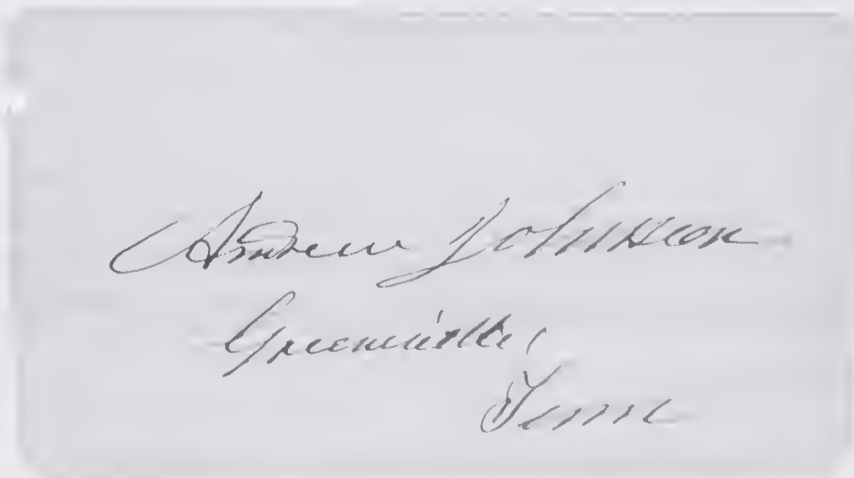 Andrew Johnson
Greeneville,
Tenn